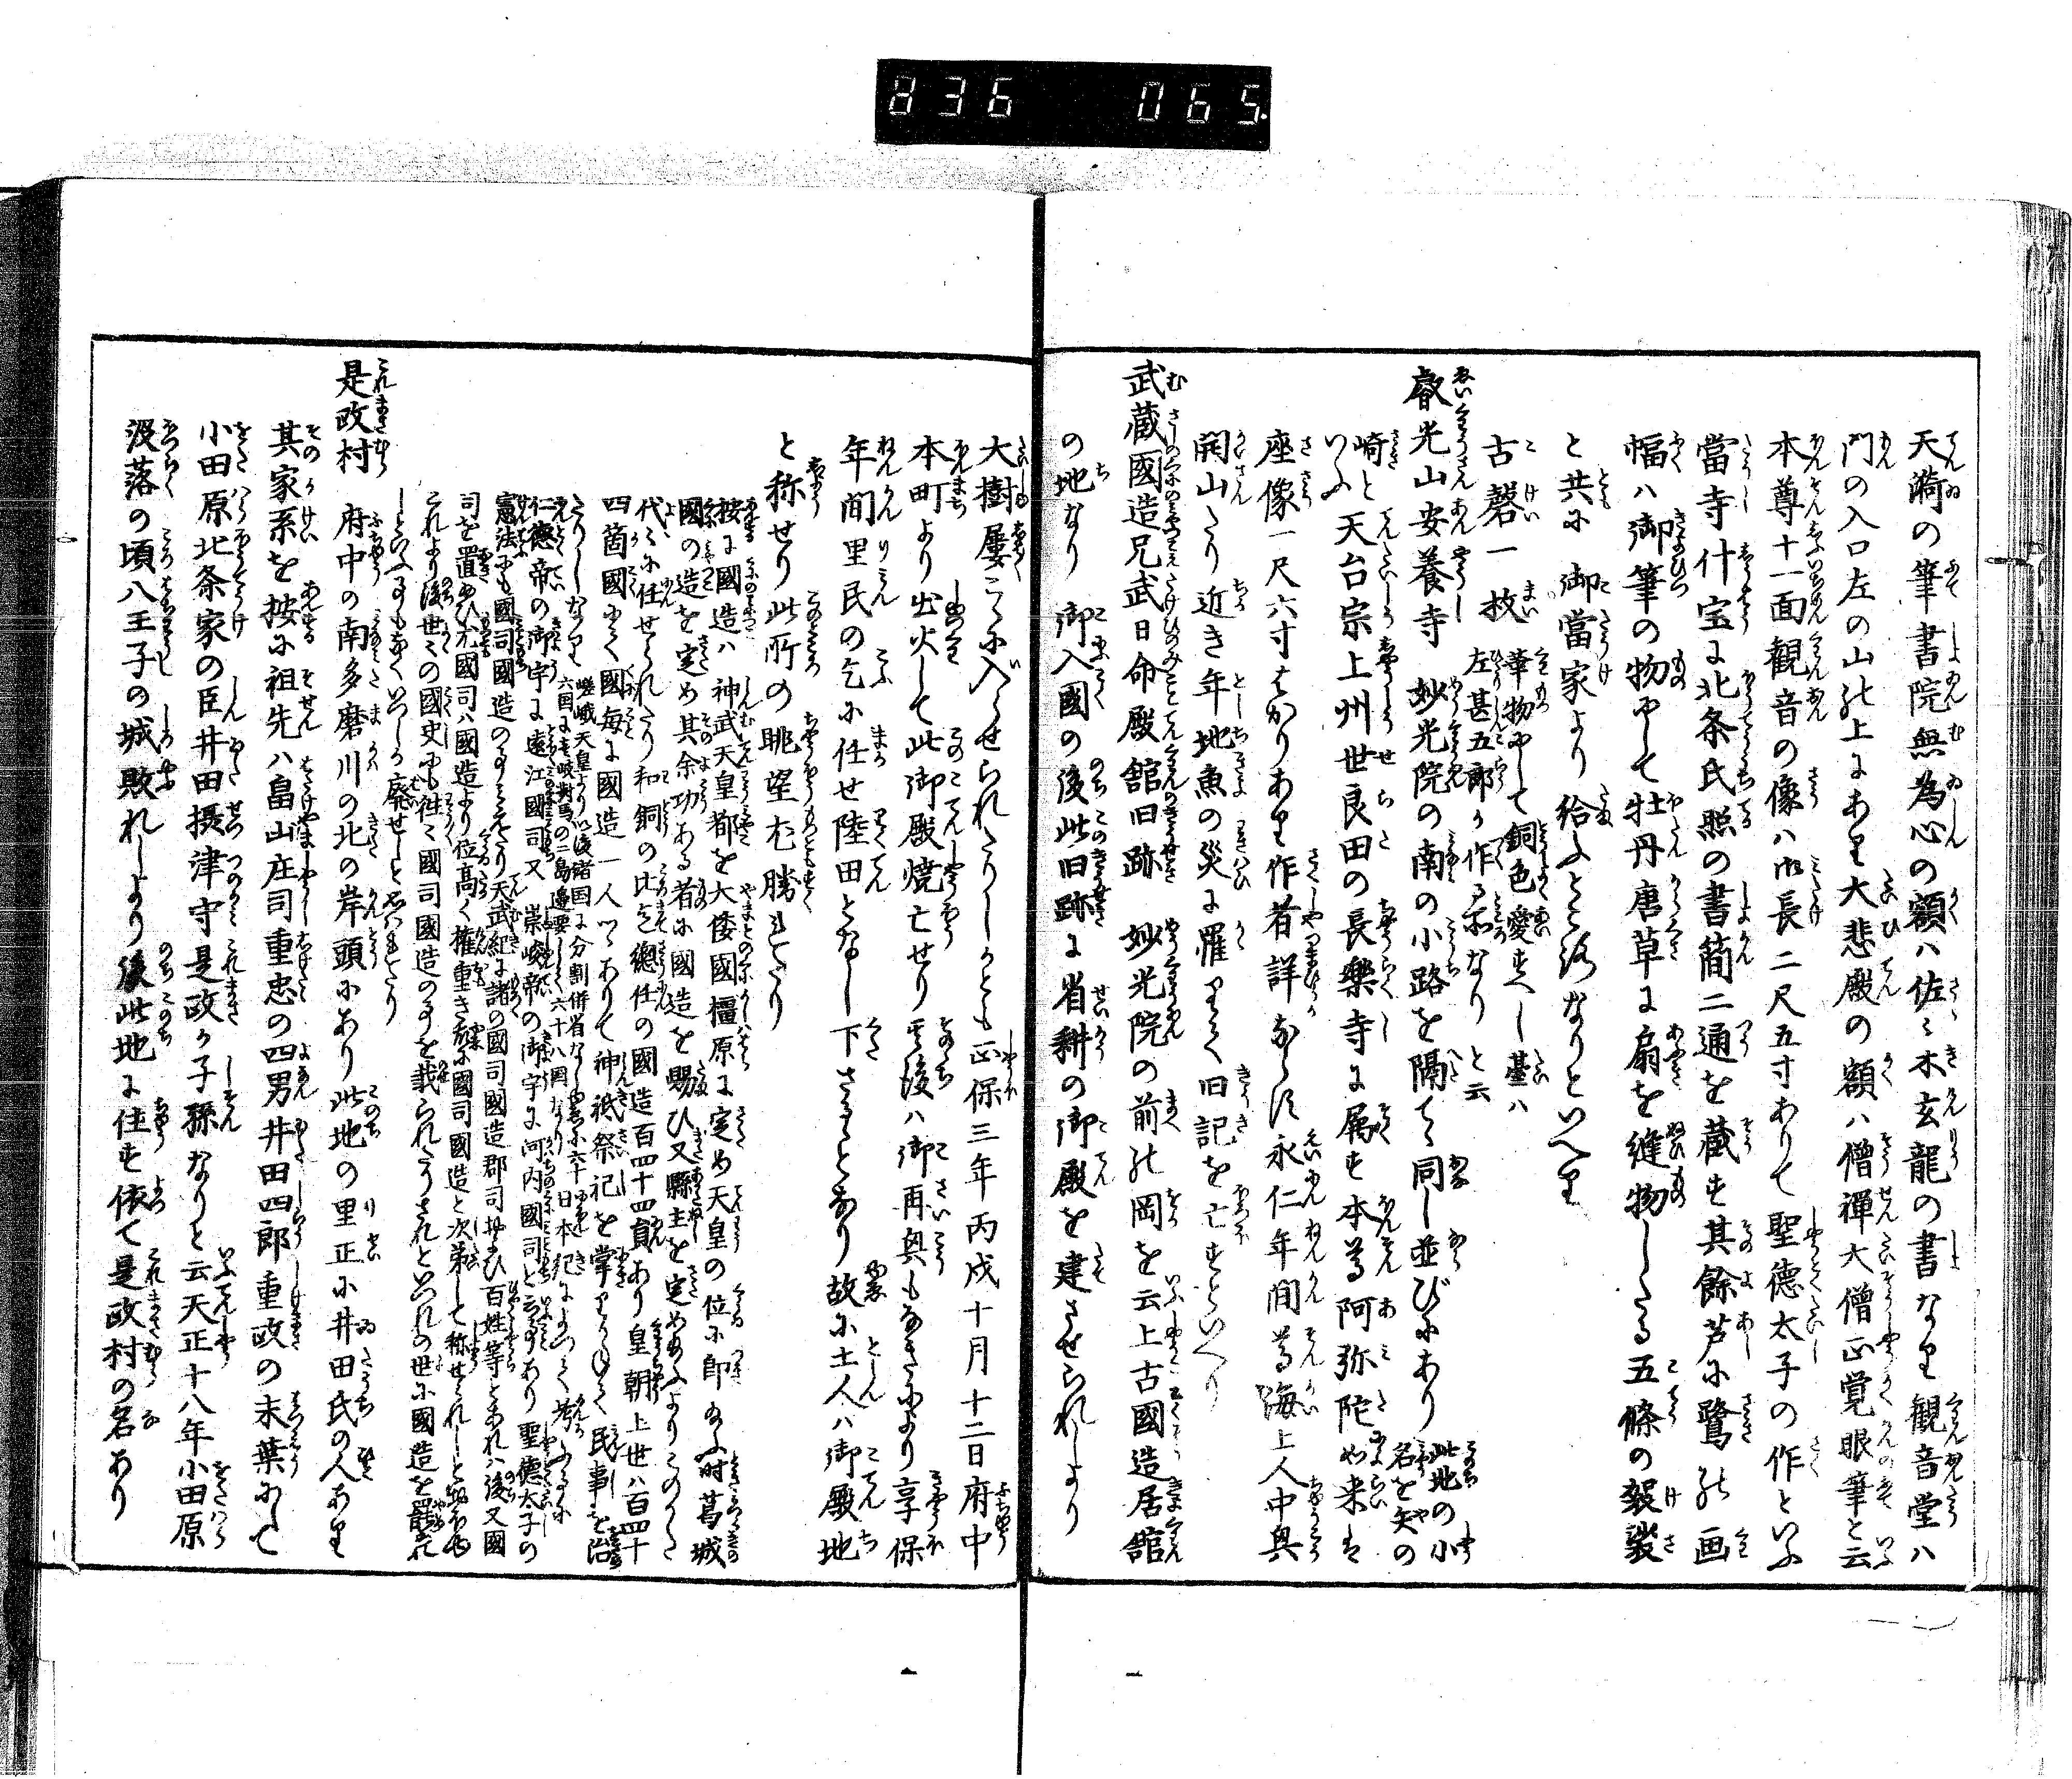 836 065
天漪の筆書院無為心の額ハ佐々木玄龍の書なり観音堂ハ
門の入口左の山の上にあり大悲殿の額ハ僧禅大僧正覚眼筆と云
本尊十一面観音の像ハ御長二尺五寸ありて聖徳太子の作といふ
當寺什宝に北条氏照の書簡二通を蔵す其餘芦に鷺の画
幅ハ御筆の物にして牡丹唐草に扇を縫物したる五條の袈裟
と共に 御當家より給ふところなりといへり
古磬一枚 華物にして銅色愛すへし臺ハ
左甚五郎か作る所なりと云
叡光山安養寺 妙光院の南の小路を隔てゝ同し並びにあり 此地の小
名を矢の
崎と
いふ 天台宗上州世良田の長樂寺に属す本尊阿弥陀如来は
座像一尺六寸はかりあり作者詳ならす永仁年間尊海上人中興
開山たり近き年地魚の災に罹りて旧記を亡すといへり
武蔵國造兄武日命殿舘旧跡 妙光院の前の岡を云上古國造居舘
の地なり 御入國の後此旧跡に省耕の御殿を建させられしより
大樹屡こゝに入らせられたりしかとも正保三年丙戌十月十二日府中
本町より出火して此御殿焼亡せり其後ハ御再興もなきにより享保
年間里民の乞に任せ陸田となし下さるゝとなり故に土人ハ御殿地
と称せり此所の眺望尤勝れたり
按に國造ハ 神武天皇都を大倭國橿原に定め天皇の位に即給ふ時葛城
國の造を定め其余功ある者に國造を賜ひ又縣主を定め給ふよりこのかた
代々に任せられたり和銅の比迄總任の國造百四十四員あり皇朝上世ハ百四十
四箇國にて國毎に國造一人つゝありて神祇祭祀を掌りかねて民事を治
たりしなり 嵯峨天皇より以後諸国に分割併省なし六十八国なり
六国に壱岐對馬の二島邊要しく 日本紀によつて考ふるに
仁徳帝の御宇に遠江國司又 崇峻帝の御宇に河内國司と云あり聖徳太子の
憲法にも國司國造のことみえたり天武紀に諸の國司國造郡司および百姓等とあれハ後又國
司を置給ひ尤國司ハ國造より位高く權重き故に國司國造と次第して称せられしと
これより後世々の國史にも往々國司國造の事を載られたりされといつれの世に國造を罷れ
しといふ事もなくいつしか廃せしとはみえたり
是政村 府中の南多磨川の北の岸頭にあり此地の里正に井田氏の人あり
其家系を按に祖先ハ畠山庄司重忠の四男井田四郎重政の末葉にして
小田原北条家の臣井田摂津守是政か子孫なりと云天正十八年小田原
没落の頃八王子の城敗れしより後此地に住す依て是政村の名あり